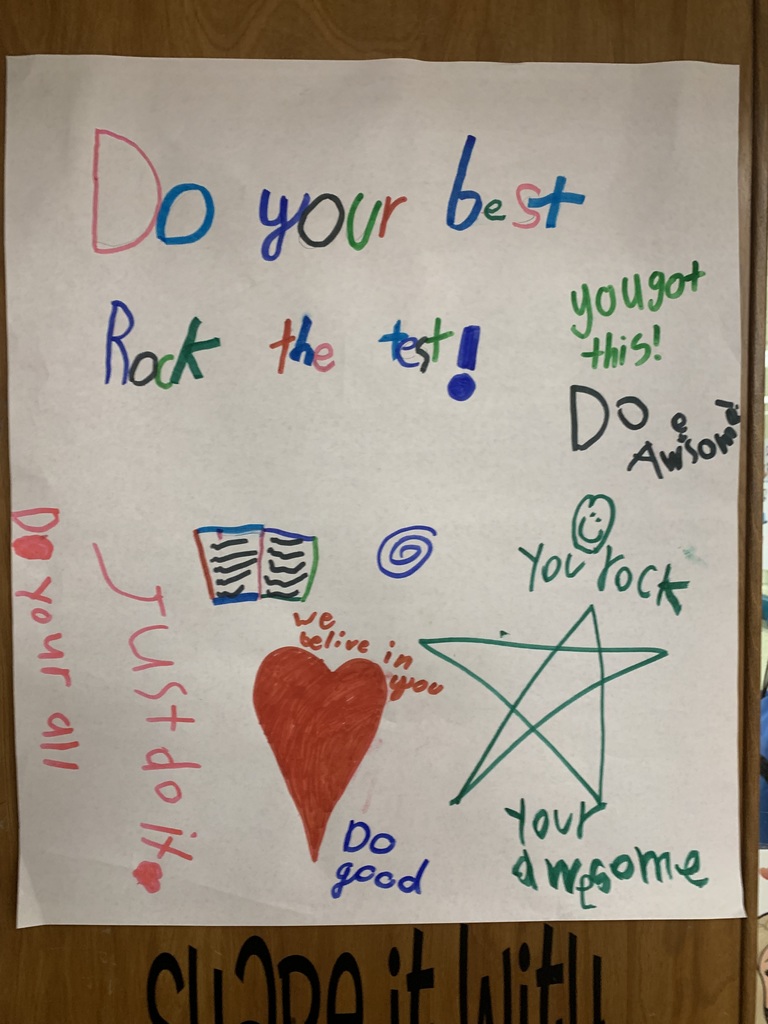 Do your best
Rock the test!
you got
this!
Do
Awsome!
You rock
we
belive in
you
Do your all
Just do it.
Do
good
Your
awesome
share it with